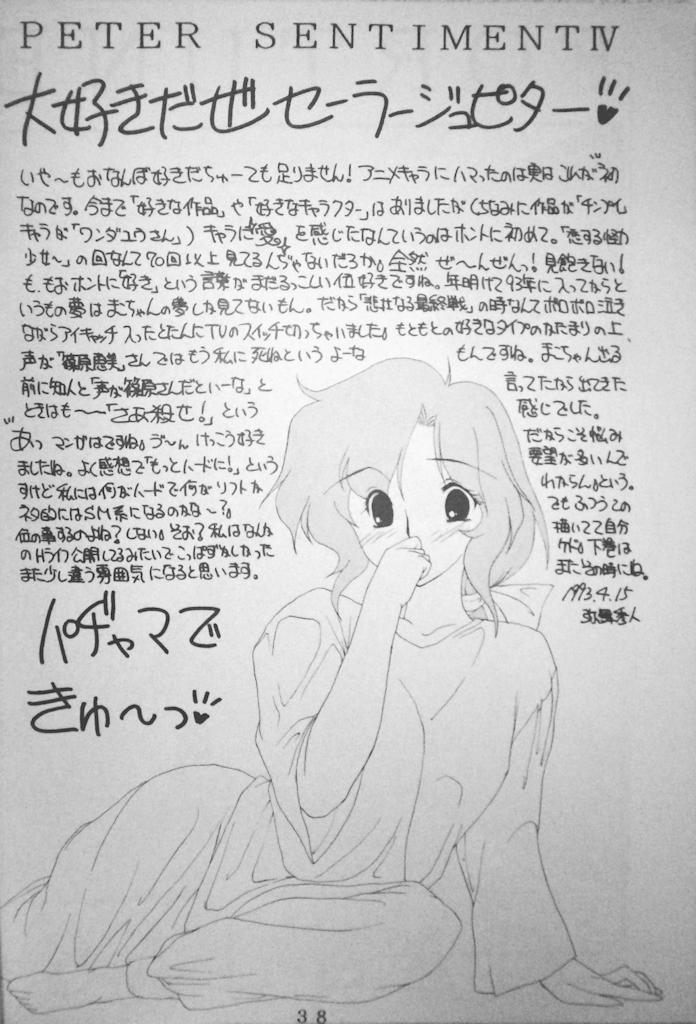 PETER SENTIMENT Ⅳ
大好きだぜセーラージュピター
いや〜もおなんぼ好きだちゅーても足りません！アニメキャラにハマったのは実はこんが初
なのです。今まで「好きな作品」や「好きなキャラクター」はありましたが（ちなみに作品が「チンプイ」
キャラが「ワンダユウさん」）キャラに愛。を感じたなんていうのはホントに初めて。「恋する怪力
少女〜」の回なんて70回以上見てるんぢゃないだろか。全然ぜ〜んぜんっ！見飽きない！
も、もおホントに「好き」という言葉がまだるっこしい位好きですね。年明けて93年に入ってからと
いうもの夢はまこちゃんの夢しか見てないもん。だから「悲壮なる最終戦」の時なんてボロボロ泣き
ながらアイキャッチ入ったとたんにTVのスイッチ切っちゃいました。もともとの好きなタイプのかたまりの上、
声が「篠原恵美」さんではもう私に死ねというよーな もんですね。まこちゃん出る
前に知人と「声が篠原さんだといーな」と 言ってたから出てきた
ときはも〜〜「さあ殺せ！」という 感じでした。
あっマンガはですね。ぢ〜んけっこう好き だからこそ悩み
ましたね。よく感想で「もっとハードに！」という 要望が多いんで
すけど私には何がハードで何がソフトか わからん。という。
ネタ的にはSM系になるのかな〜？。 でもふつうこの
位の事するのよね？しない。そお？私はなんか 描いてて自分
のHライフ公開してるみたいでこっぱずかしかった ケド。下巻は
また少し違う雰囲気になると思います。 またその時にね。
1993.4.15
パヂャマで
きゅ〜っ
38